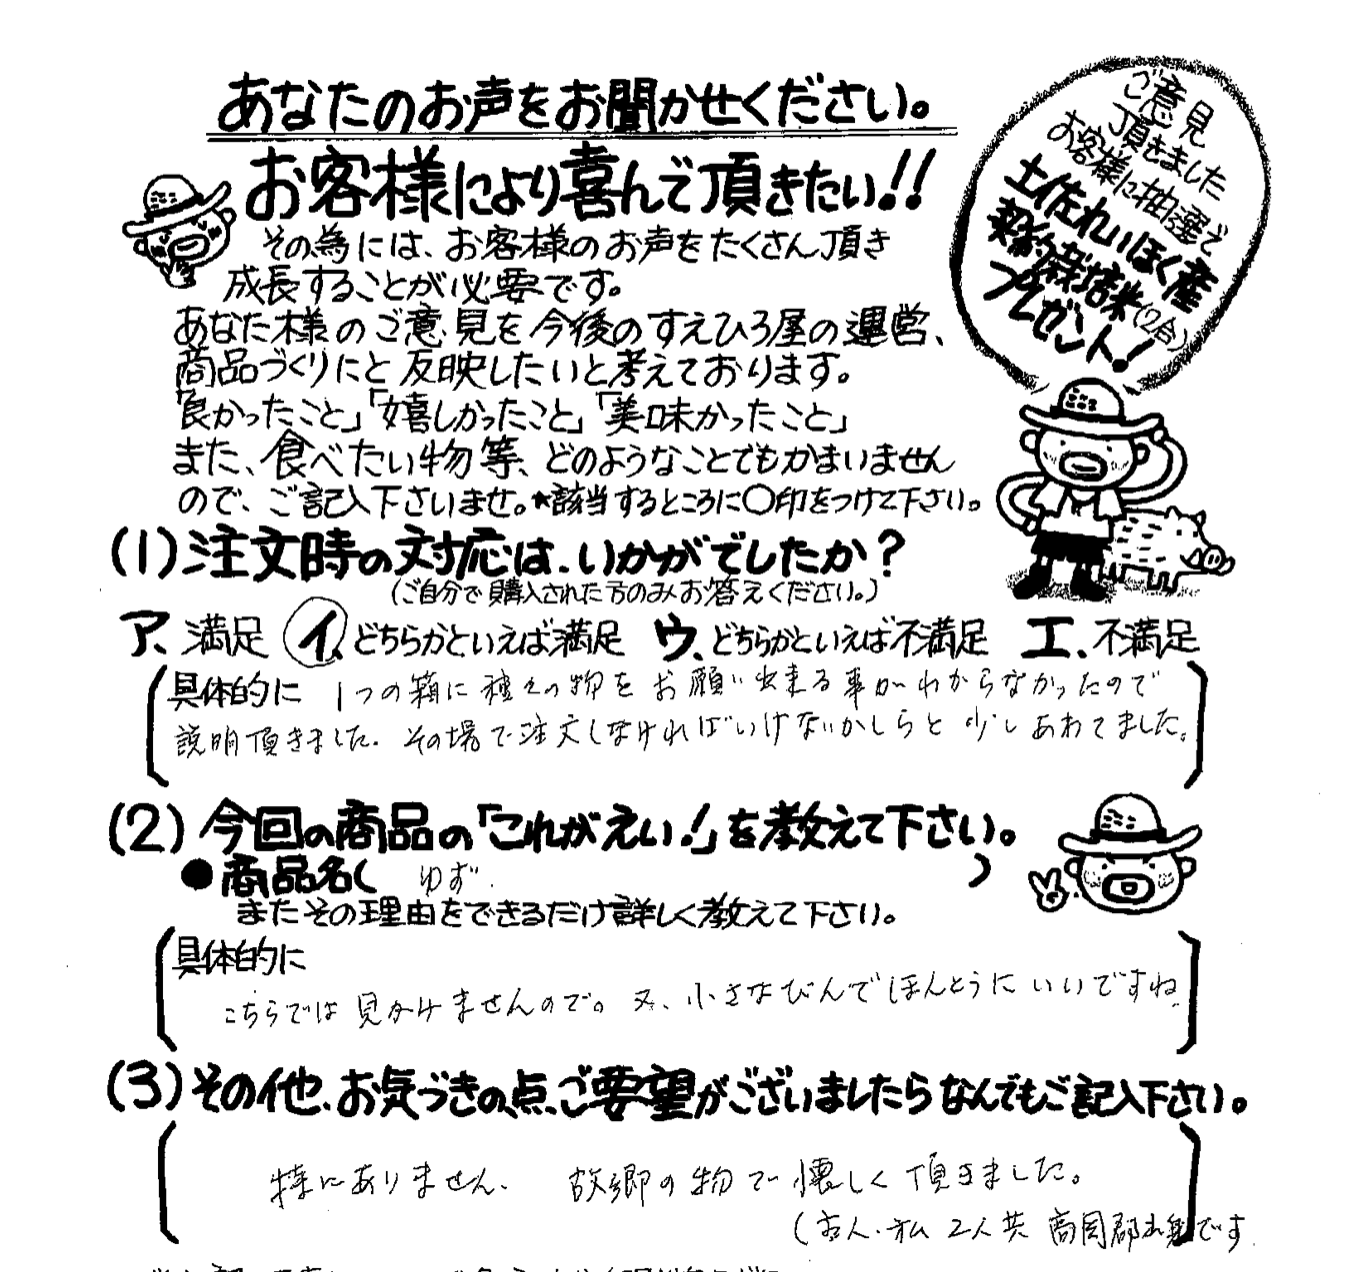 あなたのお声をお聞かせください。
お客様により喜んで頂きたい!!
その為には、お客様のお声をたくさん頂き
成長することが必要です。
あなた様のご意見を今後のすえひろ屋の運営、
商品づくりにと反映したいと考えております。
「良かったこと」「嬉しかったこと」「美味かったこと」
また、食べたい物等、どのようなことでもかまいません
ので、ご記入下さいませ。★該当するところに○印をつけて下さい。
ご意見
頂きました
お客様に抽選で
土佐れいほく産
契約栽培米(2合)
プレゼント!
(1)注文時の対応は、いかがでしたか?
(ご自分で購入された方のみお答えください。)
ア、満足 イ、どちらかといえば満足 ウ、どちらかといえば不満足 エ、不満足
具体的に 1つの箱に種々の物をお願い出来る事がわからなかったので
説明頂きました。その場で注文しなければいけないかしらと少しあわてました。
(2)今回の商品の「これがえい!」を教えて下さい。
●商品名( ゆず. )
またその理由をできるだけ詳しく教えて下さい。
具体的に
こちらでは見かけませんので。又、小さなびんでほんとうにいいですね
(3)その他、お気づきの点、ご要望がございましたらなんでもご記入下さい。
特にありません、 故郷の物で懐しく頂きました。
人、私 2人共 高岡郡出身です